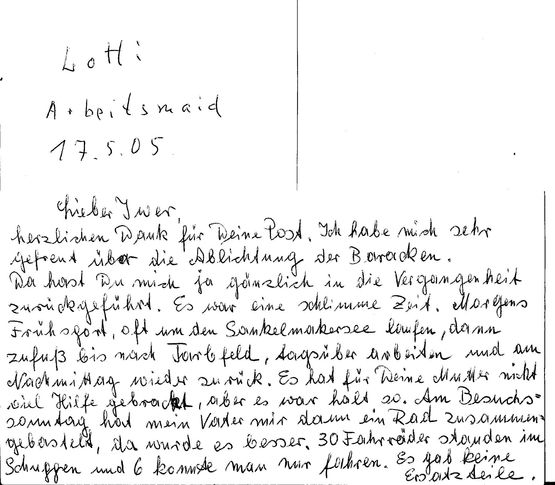 Lotti
Arbeitsmaid
17.5.05
Lieber Iwer,
herzlichen Dank für Deine Post. Ich habe mich sehr
gefreut über die Ablichtung der Baracken.
Da hast Du mich ja gänzlich in die Vergangenheit
zurückgeführt. Es war eine schlimme Zeit. Morgens
Frühsport, oft um den Sankelmakersee laufen, dann
zufuß bis nach Tarbfeld, tagsüber arbeiten und am
Nachmittag wieder zurück. Es hat für Deine Mutter nicht
viel Hilfe gebracht, aber es war halt so. Am Besuchs-
sonntag hat mein Vater mir dann ein Rad zusammen-
gebastelt, da wurde es besser. 30 Fahrräder standen im
Schuppen und 6 konnte man nur fahren. Es gab keine
Ersatzteile.